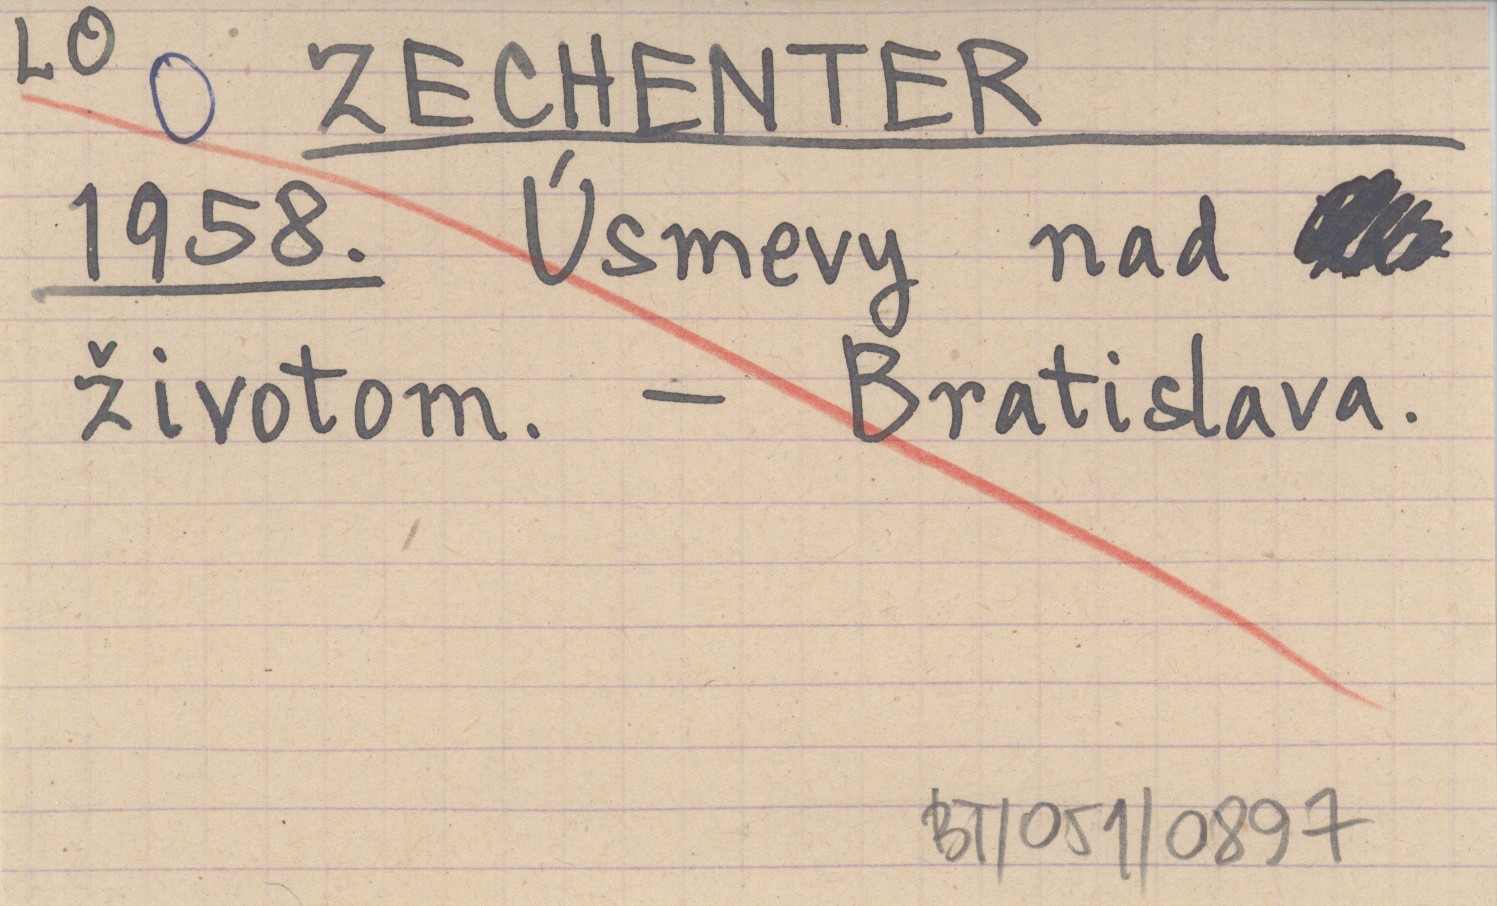 LO O ZECHENTER
1958. Úsmevy nad
životom. – Bratislava.
BT/051/0897